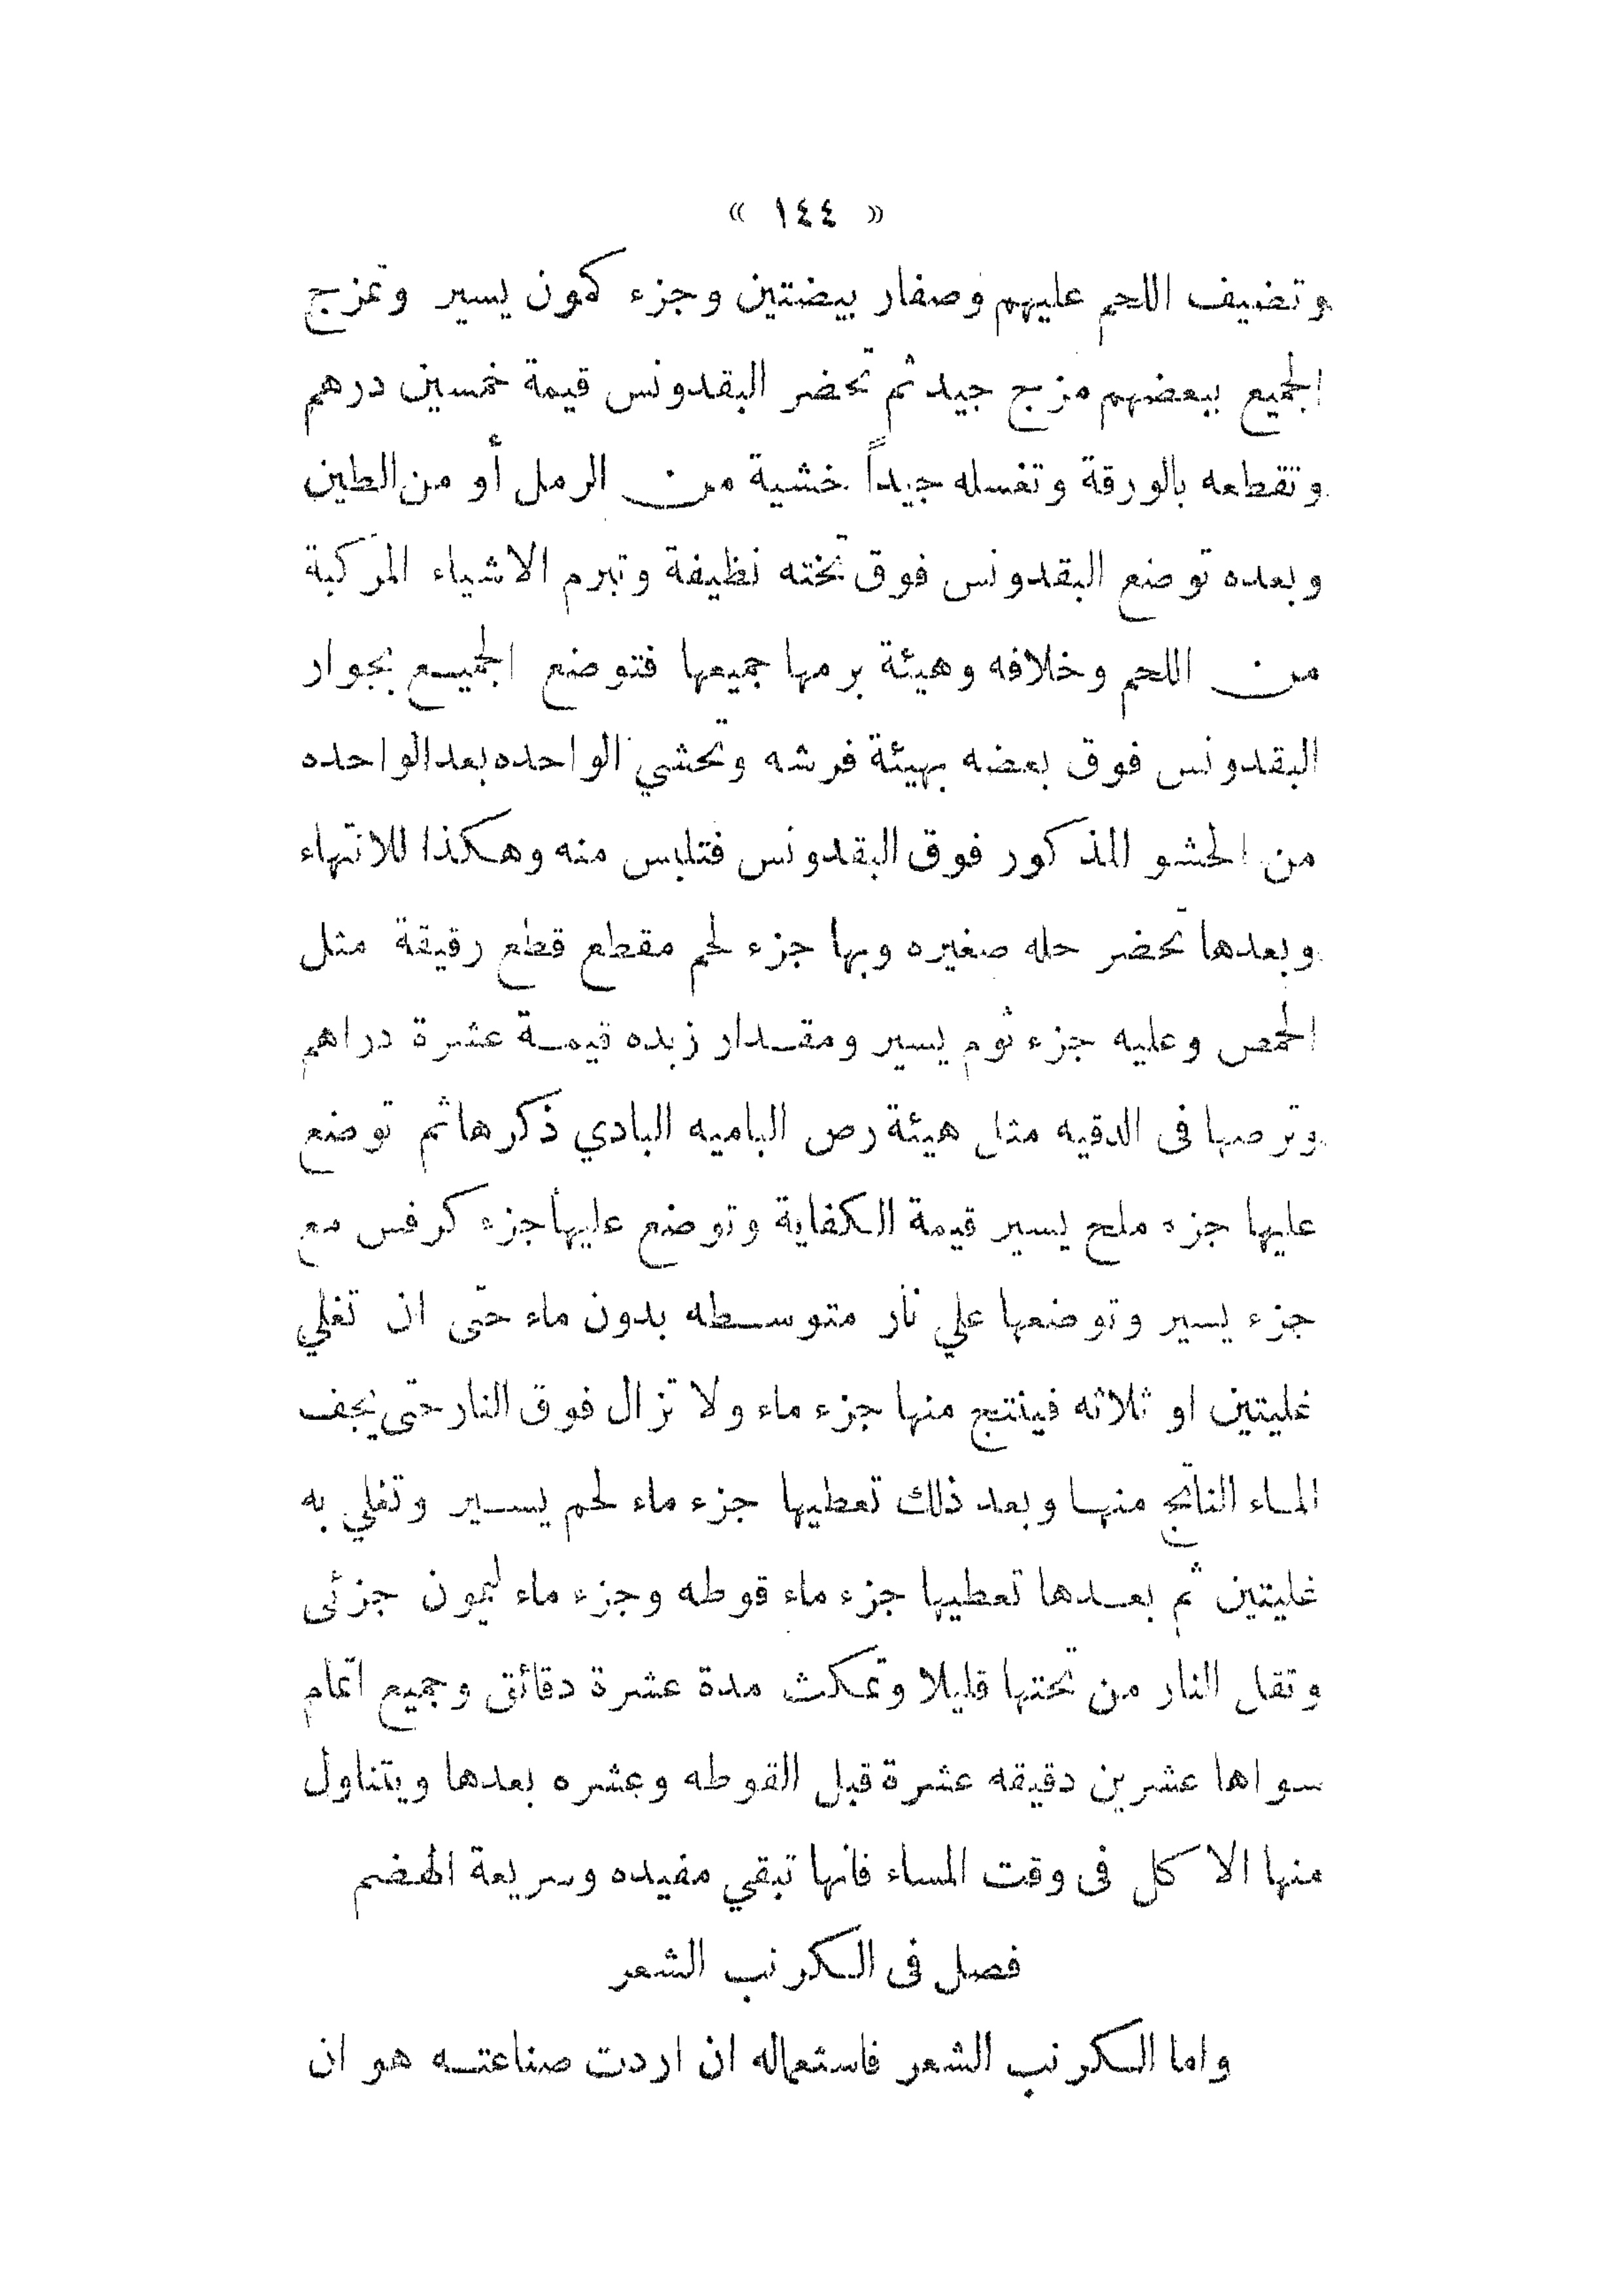 « ١٤٤ »
وتضيف اللحم عليهم وصفار بيضتين وجزء كمون يسير وتمزج
الجميع ببعضهم مزج جيد ثم تحضر البقدونس قيمة خمسين درهم
وتقطعه بالورقة وتغسله جيداً خشية من الرمل أو من الطين
وبعده توضع البقدونس فوق تخته نظيفة وتبرم الاشياء المركبة
من اللحم وخلافه وهيئة برمها جميعها فتوضع الجميع بجوار
البقدونس فوق بعضه بهيئة فرشه وتحشي الواحده بعد الواحده
من الحشو المذكور فوق البقدونس فتلبس منه وهكذا للانتهاء
وبعدها تحضر حله صغيره وبها جزء لحم مقطع قطع رقيقة مثل
الحمص وعليه جزء ثوم يسير ومقدار زبده قيمة عشرة دراهم
وترصها فى الدقيه مثل هيئة رص الباميه البادي ذكرها ثم توضع
عليها جزء ملح يسير قيمة الكفاية وتوضع عليها جزء كرفس مع
جزء يسير وتوضعها علي نار متوسطه بدون ماء حتى ان تغلي
غليتين او ثلاثه فينتج منها جزء ماء ولا تزال فوق النار حتى يجف
الماء الناتج منها وبعد ذلك تعطيها جزء ماء لحم يسير وتغلي به
غليتين ثم بعدها تعطيها جزء ماء قوطه وجزء ماء ليمون جزئى
وتقل النار من تحتها قليلا وتمكث مدة عشرة دقائق وجميع اتمام
سواها عشرين دقيقه عشرة قبل القوطه وعشره بعدها ويتناول
منها الاكل فى وقت المساء فانها تبقي مفيده وسريعة الهضم
فصل فى الكرنب الشعر
واما الكرنب الشعر فاستعماله ان اردت صناعته هو ان